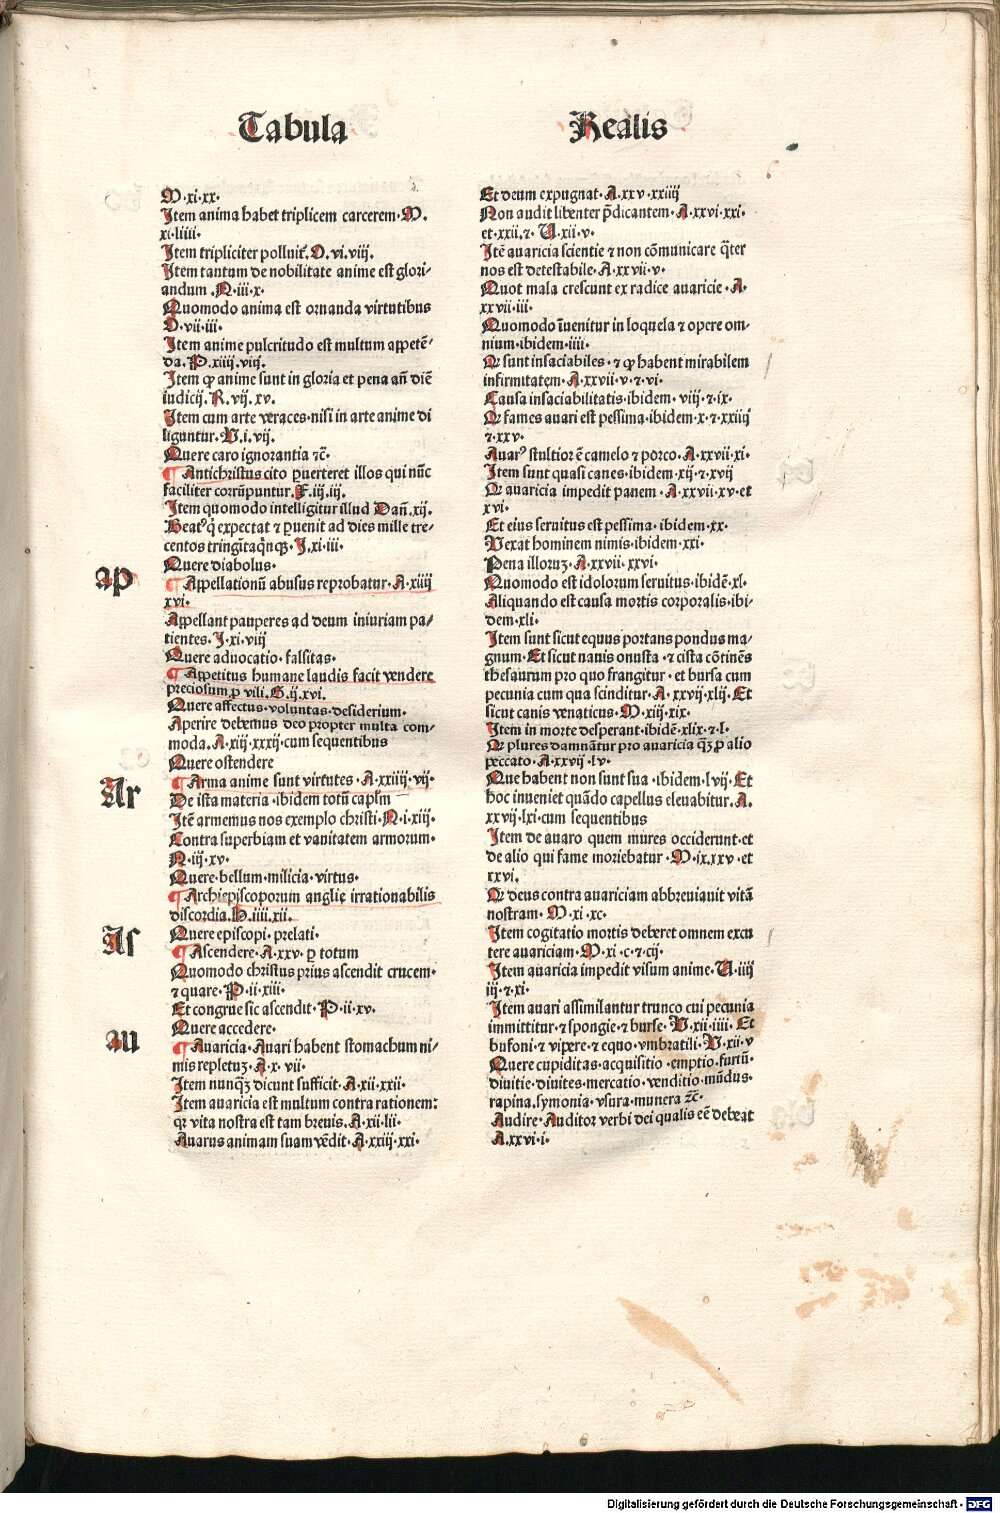 Tabula
Realis
M.xi.xx.
Item anima habet triplicem carcerem. M.
xi.liiii.
Item tripliciter polluit̉. O.vi.viij.
Item tantum de nobilitate anime est glori-
andum .N.iii.x.
Quomodo anima est ornanda virtutibus
O.vii.iii.
Item anime pulcritudo est multum appetē-
da. P.xiiij.viij.
Item ꝙ anime sunt in gloria et pena an̄ diē
iudicij. R.vij.xv.
Item cum arte veraces nisi in arte anime di
liguntur. V.i.vij.
Quere caro ignorantia ⁊c̄.
¶ Antichristus cito ꝑuerteret illos qui nūc
faciliter corrūpuntur. F.iij.iij.
Item quomodo intelligitur illud Dan̄.xij.
Beatꝰ q̇ expectat ⁊ ꝑuenit ad dies mille tre-
centos tringītaq̄nqꝫ. I.xi.iii.
Quere diabolus.
ap
¶ Appellationū abusus reprobatur. A.xiiij
xvi.
Appellant pauperes ad deum iniuriam pa-
tientes. I.xi.viij
Quere aduocatio. falsitas.
¶ Appetitus humane laudis facit vendere
preciosum ꝓ vili. G.ij.xvi.
Quere affectus. voluntas. desiderium.
Aperire debemus deo propter multa com-
moda. A.xiij.xxxij.cum sequentibus
Quere ostendere
Ar
¶ Arma anime sunt virtutes. A.xxiiij.vij.
De ista materia. ibidem totū capl̄m
Itē armemus nos exemplo christi. N.i.xiij.
Contra superbiam et vanitatem armorum.
N.iij.xv.
Quere. bellum. milicia. virtus.
¶ Archiepiscoporum anglie irrationabilis
discordia. H.iiij.xii.
Quere episcopi. prelati.
As
¶ Ascendere. A.xxv. ꝑ totum
Quomodo christus prius ascendit crucem.
⁊ quare. P.ii.xiii.
Et congrue sic ascendit. P.ii.xv.
Quere accedere.
au
¶ Auaricia. Auari habent stomachum ni-
mis repletuꝫ. A.x.vii.
Item nunqꝫ dicunt sufficit. A.xii.xxii.
Item auaricia est multum contra rationem:
qꝛ vita nostra est tam breuis. A.xii.lii.
Auarus animam suam vēdit. A.xxiij.xxi.
Et deum expugnat. A.xxv.xxiiij
Non audit libenter p̄dicantem. A.xxvi.xxi.
et.xxii.⁊. U.xii.v.
Itē auaricia scientie ⁊ non cōmunicare q̄ter
nos est detestabile. A.xxvii.v.
Quot mala crescunt ex radice auaricie. A.
xxvii.iii.
Quomodo īuenitur in loquela ⁊ opere om-
nium. ibidem.iiii.
Qꝛ sunt insaciabiles. ⁊ ꝙ habent mirabilem
infirmitatem. A.xxvii.v.⁊.vi.
Causa insaciabilitatis.ibidem. viij.⁊.ix.
Qꝛ fames auari est pessima.ibidem.x.⁊.xxiiij
⁊.xxv.
Auarꝰ stultior ē camelo ⁊ porco. A.xxvii.xi.
Item sunt quasi canes.ibidem.xij.⁊.xvij
Qꝛ auaricia impedit panem. A.xxvii.xv.et
xvi.
Et eius seruitus est pessima. ibidem.xx.
Vexat hominem nimis.ibidem.xxi.
Pena illoruꝫ. A.xxvii.xxvi.
Quomodo est idolorum seruitus.ibidē.xl.
Aliquando est causa mortis corporalis.ibi-
dem.xli.
Item sunt sicut equus portans pondus ma-
gnum. Et sicut nauis onusta. ⁊ cista cōtinēs
thesaurum pro quo frangitur. et bursa cum
pecunia cum qua scinditur. A.xxvij.xlij. Et
sicut canis venaticus. M.xiij.xix.
Item in morte desperant.ibidē.xlix.⁊.l.
Qꝛ plures damnātur pro auaricia q̄ꝫ ꝓ alio
peccato. A.xxvij.lv.
Que habent non sunt sua .ibidem.lvij. Et
hoc inueniet quādo capellus eleuabitur. A.
xxvij.lxi.cum sequentibus
Item de auaro quem mures occiderunt.et
de alio qui fame moriebatur. M.ix.xxv.et
xxvi.
Qꝛ deus contra auariciam abbreuiauit vitā
nostram. M.xi.xc.
Item cogitatio mortis deberet omnem excu
tere auariciam. M.xi.c.⁊.cij.
Item auaricia impedit visum anime. U.iiij
iij.⁊.xi.
Item auari assimilantur trunco cui pecunia
immittitur.⁊ spongie.⁊ burse. V.xii.iiii. Et
bufoni.⁊ vipere.⁊ equo.vmbratili. V.xii.v
Quere cupiditas.acquisitio.emptio.furtū.
diuitie.diuites.mercatio.venditio.mūdus.
rapina.symonia.vsura.munera ⁊c̄.
Audire. Auditor verbi dei qualis eē debeat
A.xxvi.i.
Digitalisierung gefördert durch die Deutsche Forschungsgemeinschaft - DFG